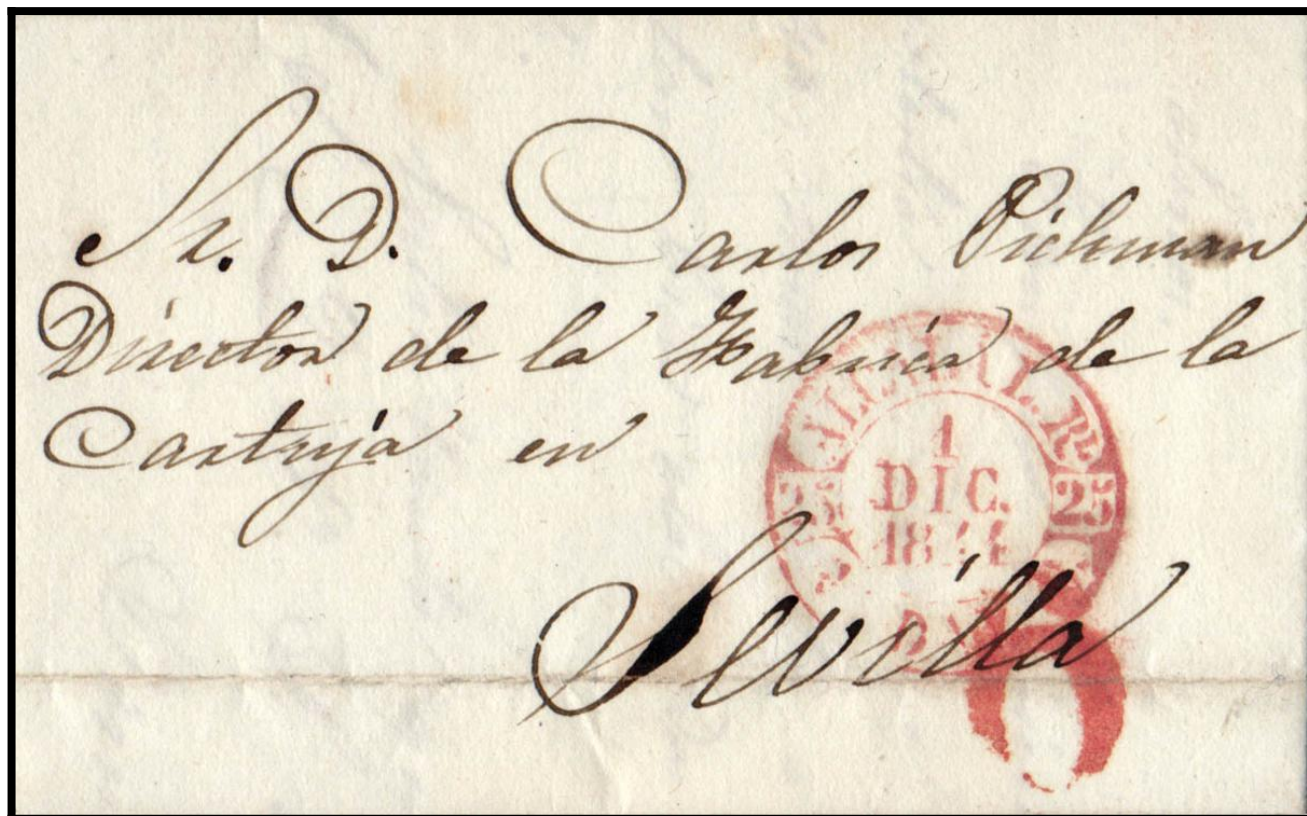 Sr. D. Carlos Pickman
Director de la Fabrica de la
Cartuja en
Sevilla
1
DIC.
1844
25
25